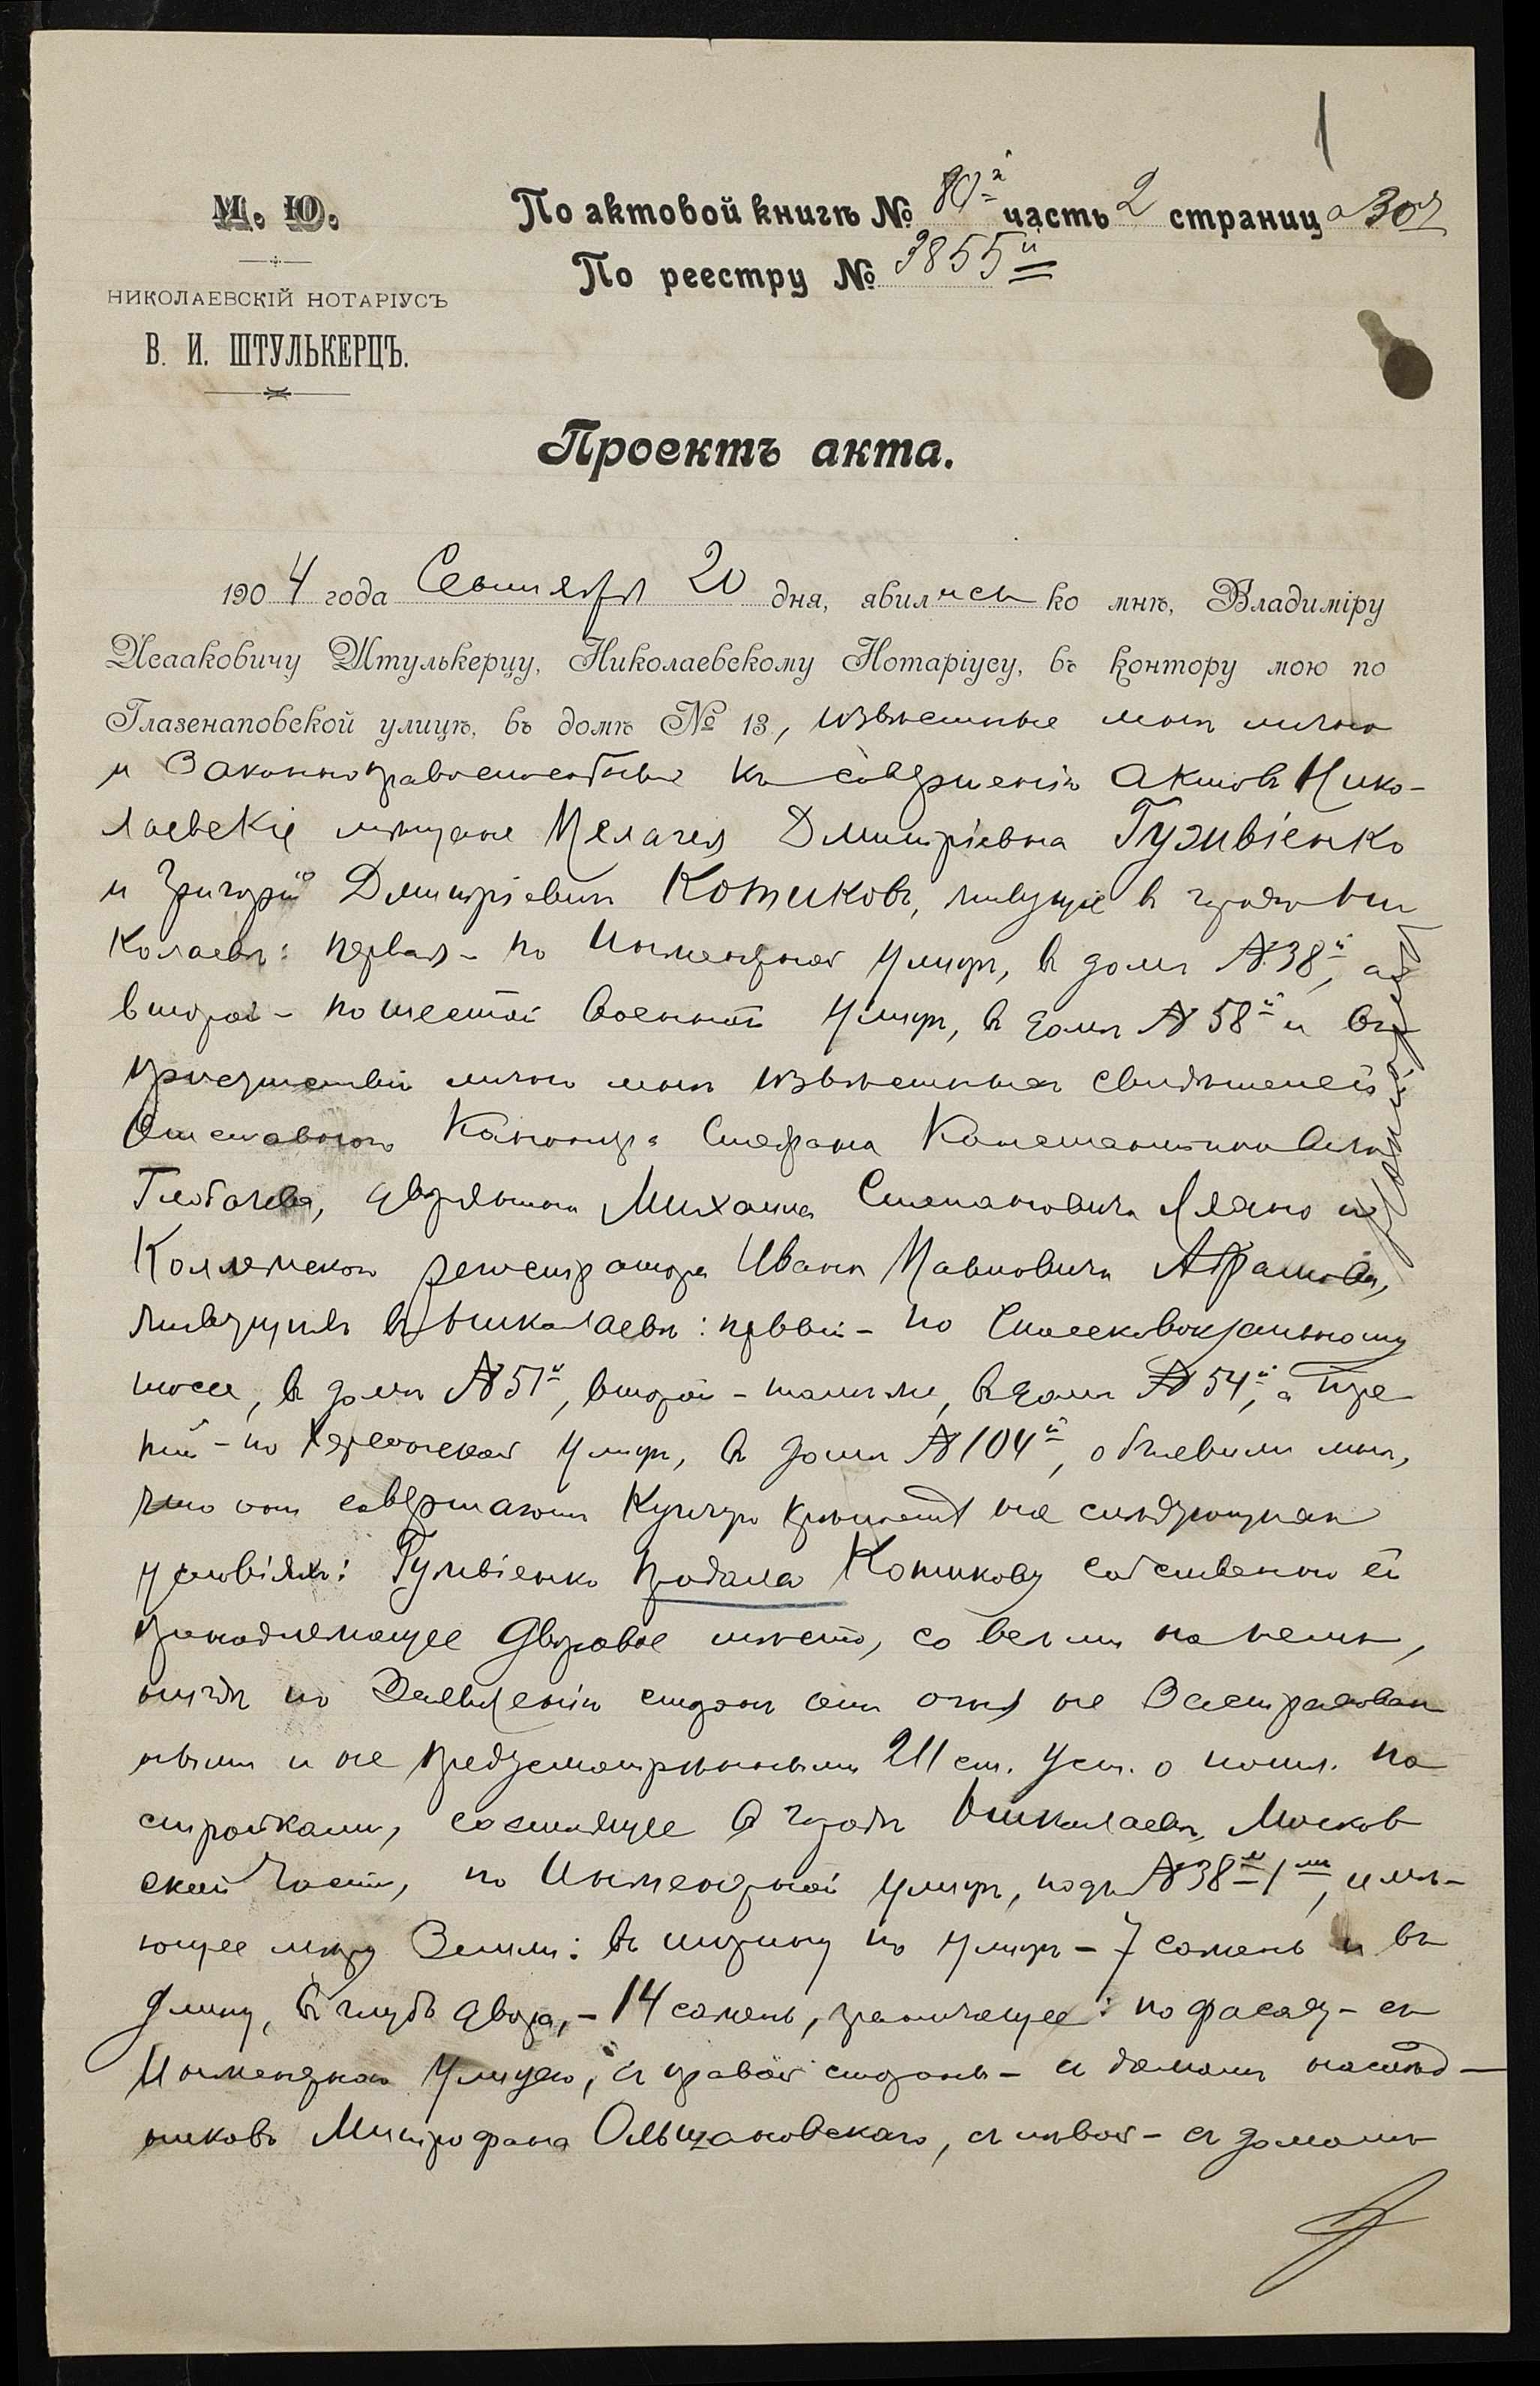 1
М. Ю.
НИКОЛАЕВСКІЙ НОТАРІУСЪ
В. И. ШТУЛЬКЕРЦЪ.
По актовой книгѣ № 80й часть 2 страница 307
По реестру № 3855й
Проектъ акта.
1904 года Сентября 20 дня, явились ко мнѣ, Владиміру
Исааковичу Штулькерцу, Николаевскому Нотаріусу, въ контору мою по
Глазенаповской улицѣ, въ домѣ № 13, извѣстные мнѣ лично
и законноправоспособные къ совершенію актовъ Нико-
лаевскіе мѣщане Пелагея Дмитріевна Гузивіенко
и Григорій Дмитріевичъ Котиковъ, живущіе въ городѣ Ни
колаевѣ: первая - по Инженерной улицѣ, въ домѣ № 38й, а
второй - по шестой Военной улицѣ, въ домѣ № 58й и въ
присутствіи лично мнѣ извѣстныхъ свидѣтелей:
Отставного Канонира Стефана Константиновича
дворянина Михаила Степановича и
Коллежскаго регистратора Ивана Павловича Абрамова,
живущихъ въ Николаевѣ: первый - по Спасековокзальному
шоссе, въ домѣ № 51й, второй - тамъ же, въ домѣ № 54й, а тре
тій - по Херсонской улицѣ, въ домѣ № 104й, объявили мнѣ,
что они совершаютъ купчую крѣпость на слѣдующихъ
условіяхъ: Гузивіенко продала Котикову собственно ей
принадлежащее дворовое мѣсто, со всѣми на немъ,
нигдѣ по заявленію сторонъ отъ огня не застрахован
ными и не предусмотрѣнными 211 ст. Уст. о пошл. по
стройками, состоящее въ городѣ Николаевѣ, Москов
ской части, по Инженерной улицѣ, подъ № 38м-1м, имѣ-
ющее мѣру земли: въ ширину по улицѣ - 7 сажень и въ
длину, въ глубь двора, - 14 сажень, граничащее: по фасаду - съ
Инженерною улицею, съ правой стороны - съ домомъ наслѣд-
никовъ Митрофана Ольшановскаго, съ лѣвой - съ домомъ